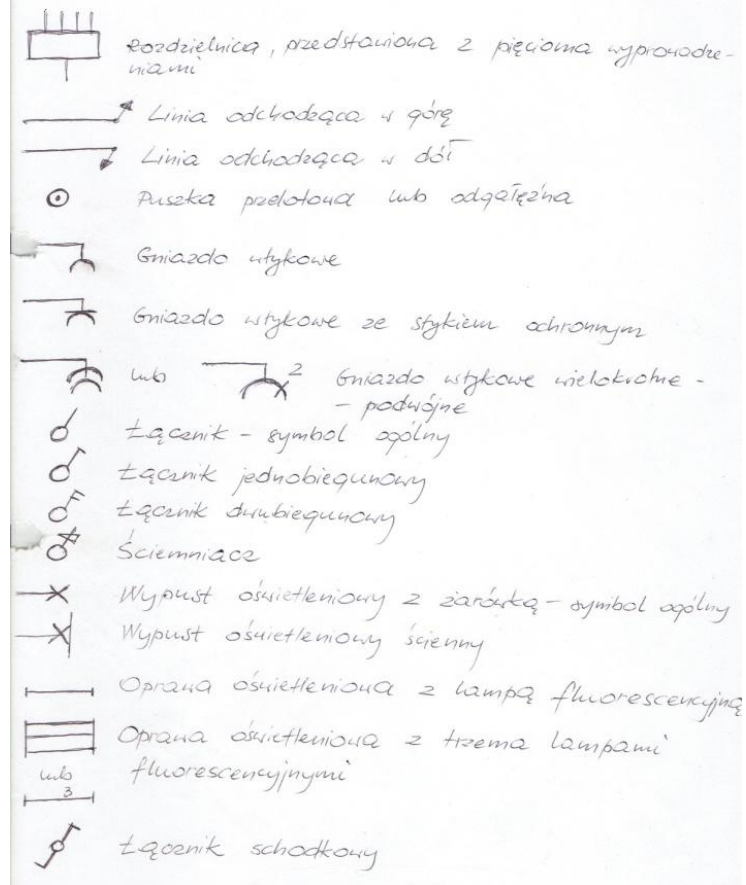 Rozdzielnica, przedstawiona z pięcioma wyprowadze-
niami
Linia odchodząca w górę
Linia odchodząca w dół
Puszka przelotowa lub odgałęźna
Gniazdo wtykowe
Gniazdo wtykowe ze stykiem ochronnym
lub 2 Gniazdo wtykowe wielokrotne -
- podwójne
Łącznik - symbol ogólny
Łącznik jednobiegunowy
Łącznik dwubiegunowy
Ściemniacz
Wypust oświetleniowy z żarówką - symbol ogólny
Wypust oświetleniowy ścienny
Oprawa oświetleniowa z lampą fluorescencyjną
Oprawa oświetleniowa z trzema lampami
lub fluorescencyjnymi
3
Łącznik schodkowy